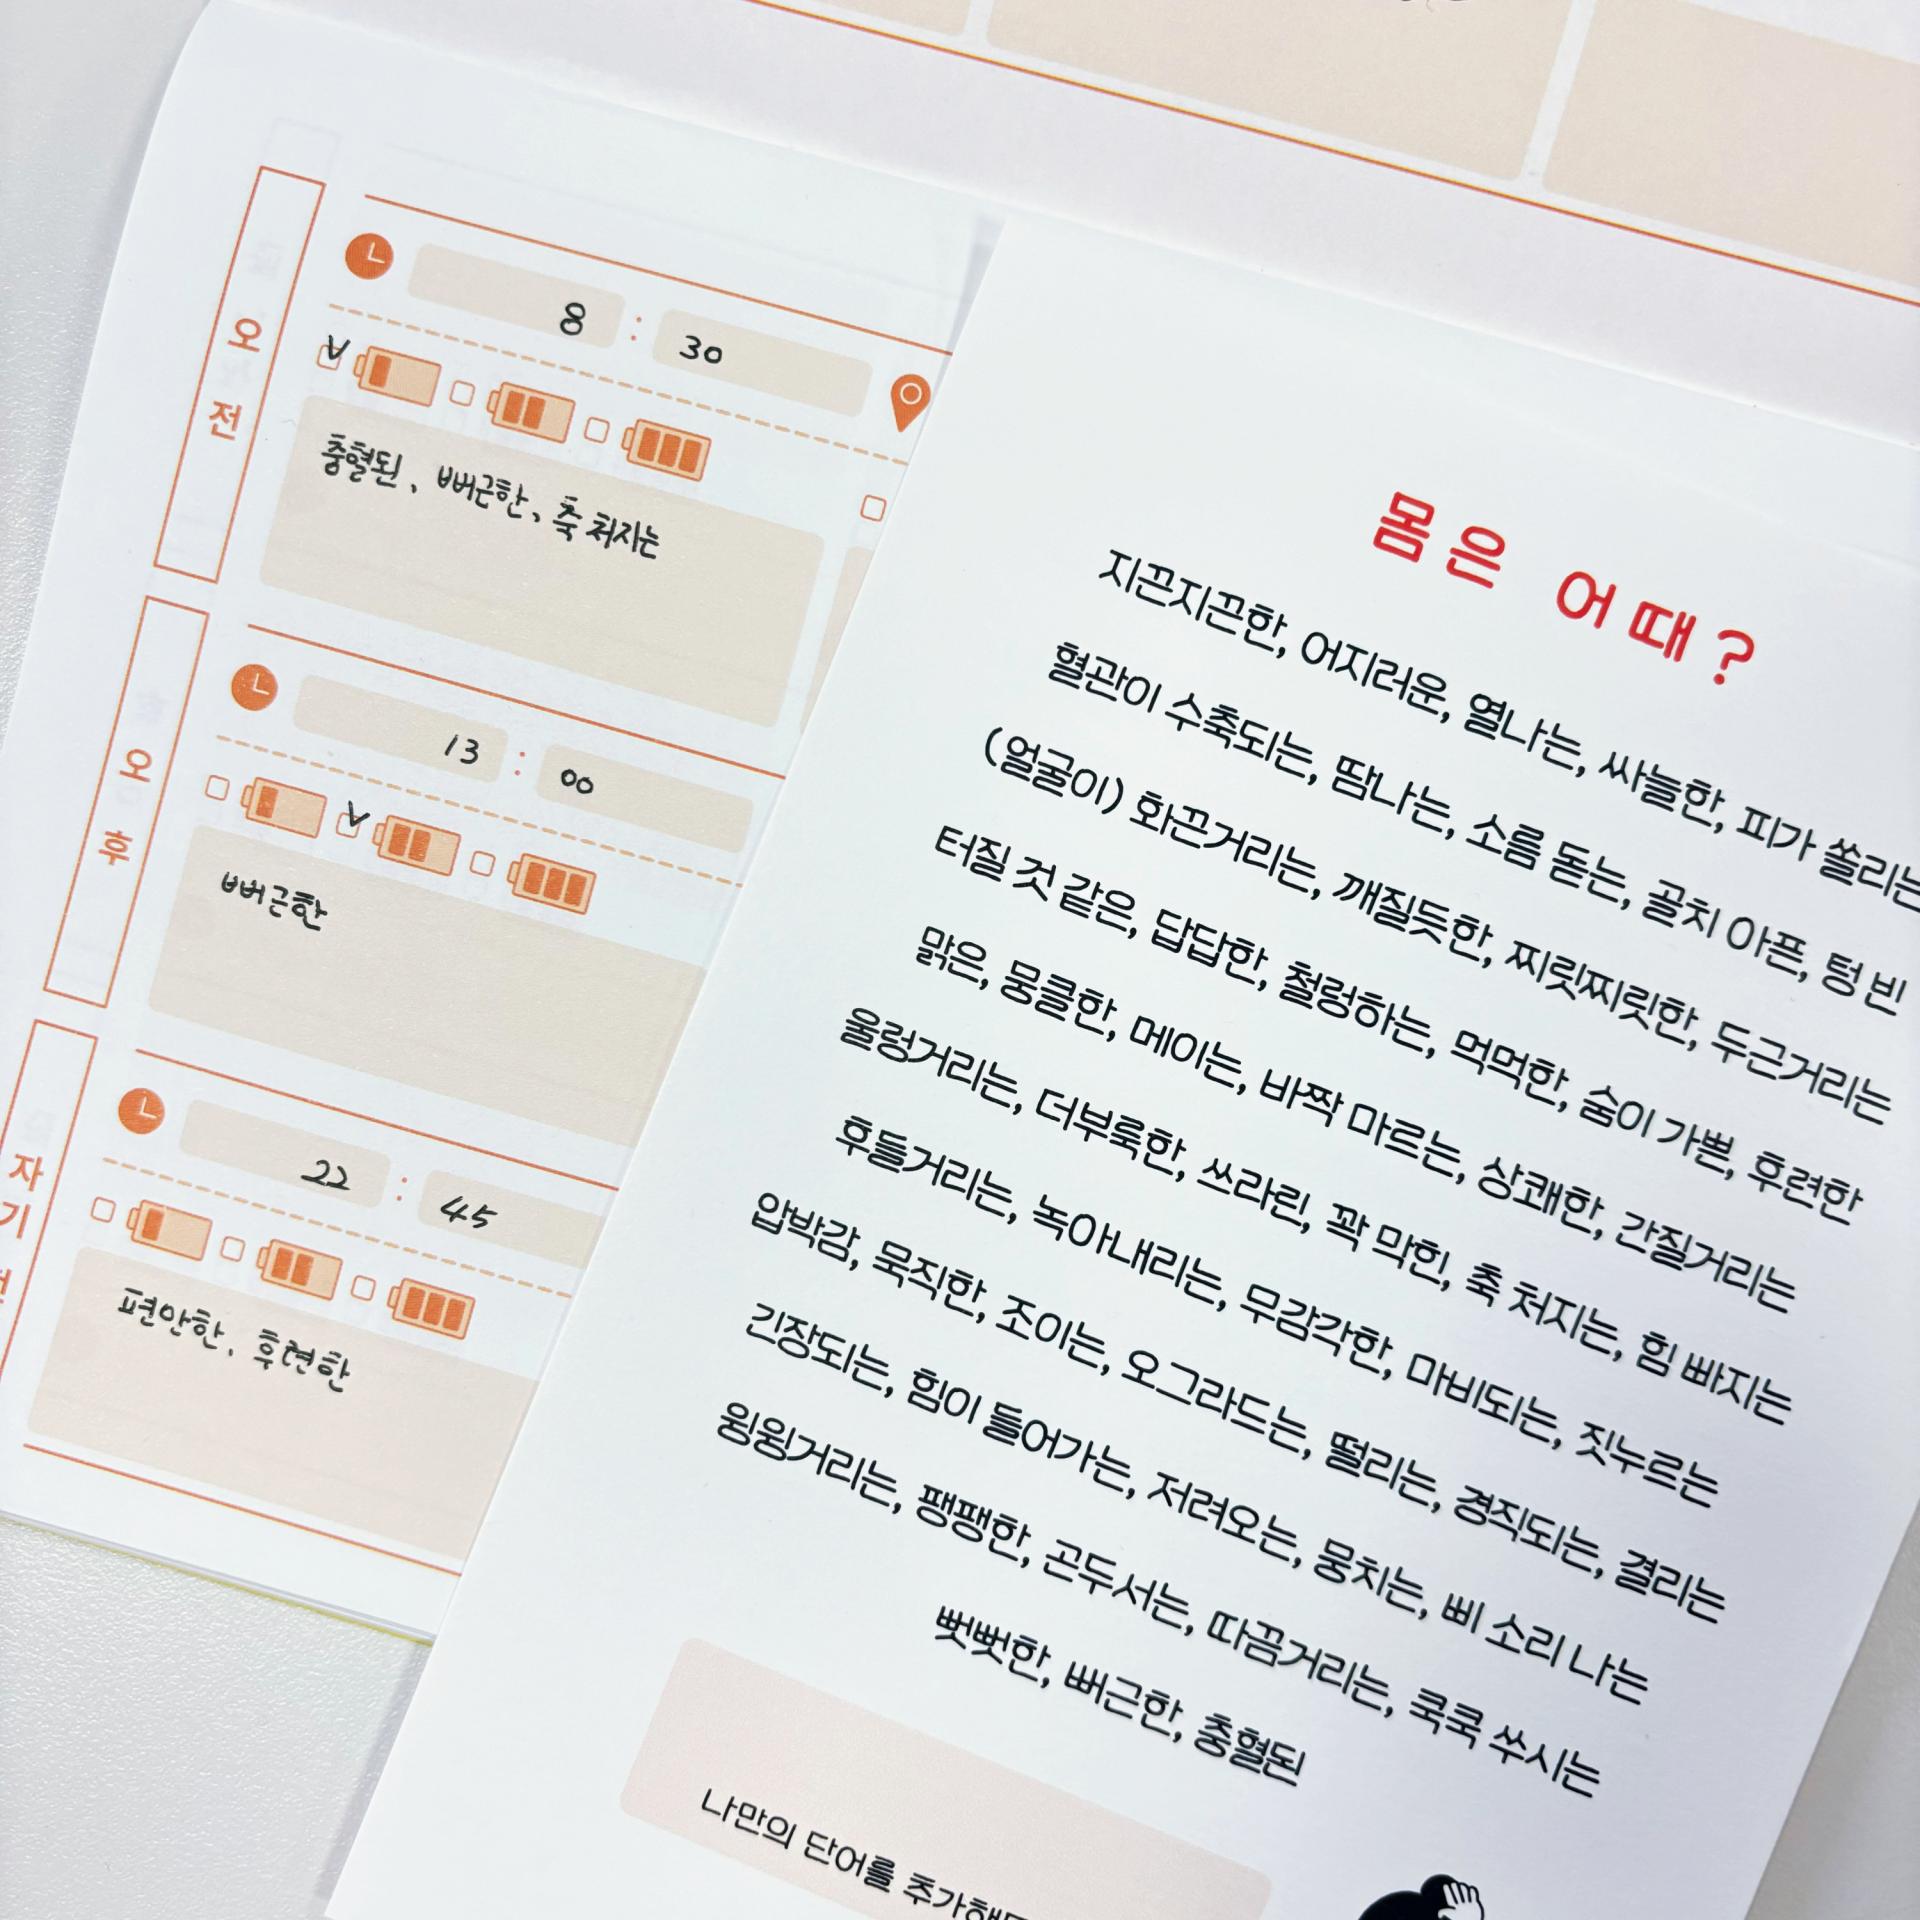 오전
8 : 30
충혈된, 뻐근한, 축 처지는
오후
13 : 00
뻐근한
자기
22 : 45
편안한, 후련한
몸은 어때?
지끈지끈한, 어지러운, 열나는, 싸늘한, 피가 쏠리는
혈관이 수축되는, 땀나는, 소름 돋는, 골치 아픈, 텅 빈
(얼굴이) 화끈거리는, 깨질듯한, 찌릿찌릿한, 두근거리는
터질 것 같은, 답답한, 철렁하는, 먹먹한, 숨이 가쁜, 후련한
맑은, 뭉클한, 메이는, 바짝 마르는, 상쾌한, 간질거리는
울렁거리는, 더부룩한, 쓰라린, 꽉 막힌, 축 처지는, 힘 빠지는
후들거리는, 녹아내리는, 무감각한, 마비되는, 짓누르는
압박감, 묵직한, 조이는, 오그라드는, 떨리는, 경직되는, 결리는
긴장되는, 힘이 들어가는, 저려오는, 뭉치는, 삐 소리 나는
윙윙거리는, 팽팽한, 곤두서는, 따끔거리는, 쿡쿡 쑤시는
뻣뻣한, 뻐근한, 충혈된
나만의 단어를